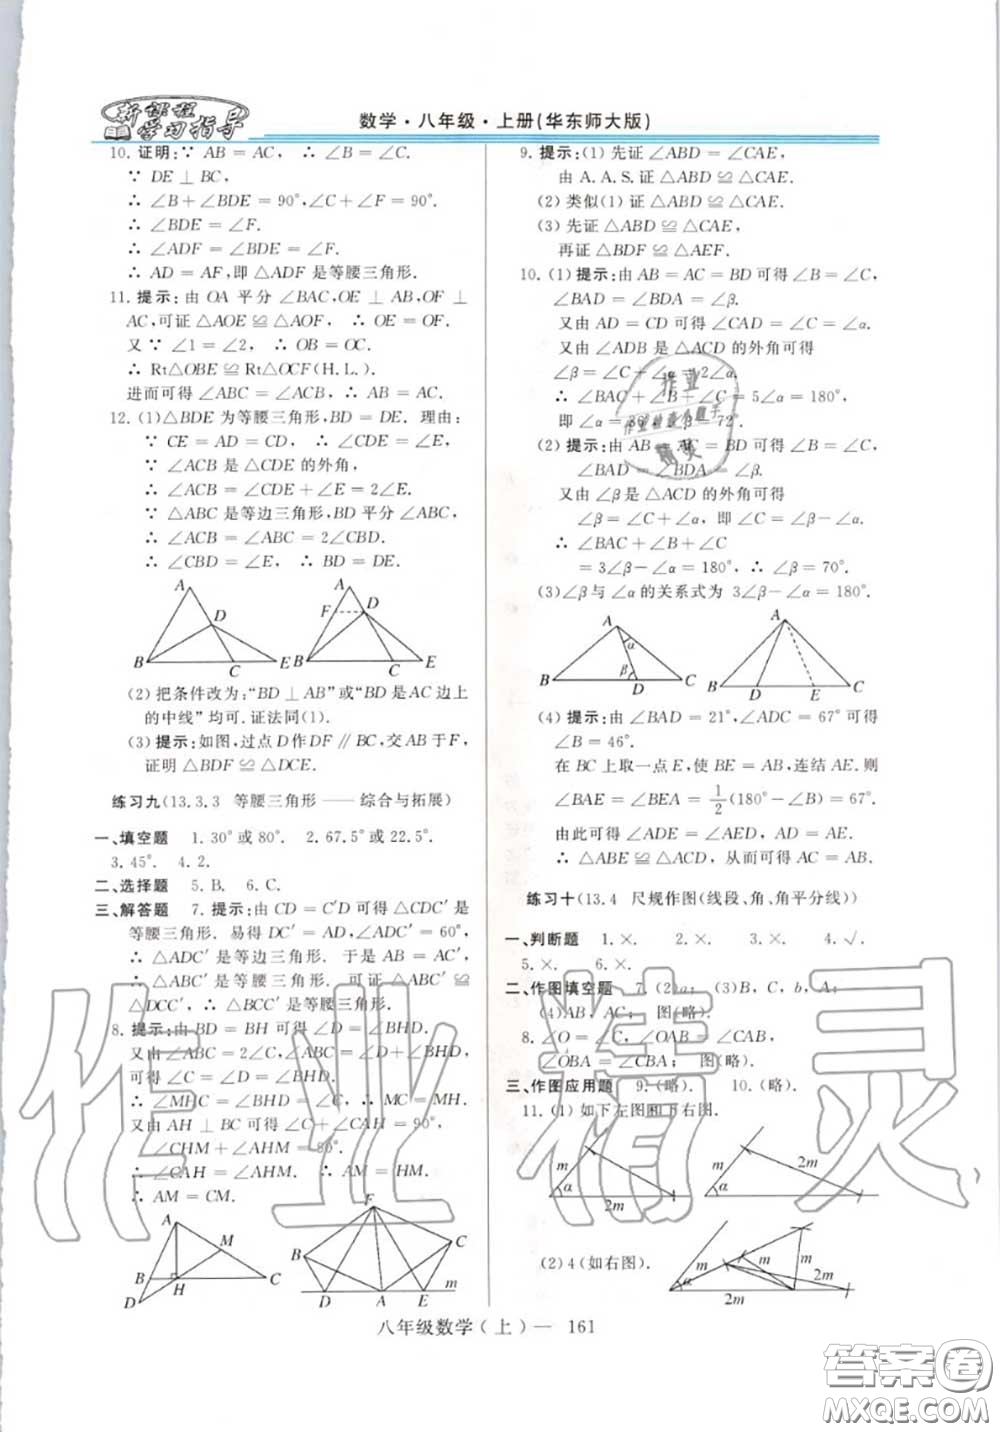 新课程
学习指导
数学·八年级·上册(华东师大版)
10. 证明:∵ AB = AC, ∴ ∠B = ∠C.
∵ DE ⊥ BC,
∴ ∠B+∠BDE = 90°,∠C+∠F = 90°.
∴ ∠BDE = ∠F.
∴ ∠ADF = ∠BDE = ∠F.
∴ AD = AF,即 △ADF 是等腰三角形.
11. 提示:由 OA 平分 ∠BAC,OE ⊥ AB,OF ⊥
AC,可证 △AOE ≌ △AOF, ∴ OE = OF.
又 ∵ ∠1 = ∠2, ∴ OB = OC.
∴ Rt△OBE ≌ Rt△OCF(H.L.).
进而可得 ∠ABC = ∠ACB, ∴ AB = AC.
12. (1)△BDE 为等腰三角形,BD = DE. 理由:
∵ CE = AD = CD, ∴ ∠CDE = ∠E.
∵ ∠ACB 是 △CDE 的外角,
∴ ∠ACB = ∠CDE+∠E = 2∠E.
∵ △ABC 是等边三角形,BD 平分 ∠ABC,
∴ ∠ACB = ∠ABC = 2∠CBD.
∴ ∠CBD = ∠E, ∴ BD = DE.
A
D
B
C
E
A
F
D
B
C
E
(2) 把条件改为:“BD ⊥ AB”或“BD 是 AC 边上
的中线”均可. 证法同(1).
(3) 提示:如图,过点 D 作 DF ∥ BC,交 AB 于 F,
证明 △BDF ≌ △DCE.
练习九(13.3.3 等腰三角形 —— 综合与拓展)
一、填空题 1. 30° 或 80°. 2. 67.5° 或 22.5°.
3. 45°. 4. 2.
二、选择题 5. B. 6. C.
三、解答题 7. 提示:由 CD = C′D 可得 △CDC′ 是
等腰三角形. 易得 DC′ = AD,∠ADC′ = 60°,
∴ △ADC′ 是等边三角形. 于是 AB = AC′,
∴ △ABC′ 是等腰三角形. 可证 △ABC′ ≌
△DCC′, ∴ △BCC′ 是等腰三角形.
8. 提示:由 BD = BH 可得 ∠D = ∠BHD.
又由 ∠ABC = 2∠C,∠ABC = ∠D+∠BHD,
可得 ∠C = ∠D = ∠BHD.
∴ ∠MHC = ∠BHD = ∠C, ∴ MC = MH.
又由 AH ⊥ BC 可得 ∠C+∠CAH = 90°,
∠CHM+∠AHM = 90°.
∴ ∠CAH = ∠AHM. ∴ AM = HM.
∴ AM = CM.
A
M
B
H
C
D
F
B
C
D
A
E
m
9. 提示:(1) 先证 ∠ABD = ∠CAE,
由 A.A.S. 证 △ABD ≌ △CAE.
(2) 类似(1) 证 △ABD ≌ △CAE.
(3) 先证 △ABD ≌ △CAE,
再证 △BDF ≌ △AEF.
10. (1) 提示:由 AB = AC = BD 可得 ∠B = ∠C,
∠BAD = ∠BDA = ∠β.
又由 AD = CD 可得 ∠CAD = ∠C = ∠α.
又由 ∠ADB 是 △ACD 的外角可得
∠β = ∠C+∠α = 2∠α.
∴ ∠BAC+∠B+∠C = 5∠α = 180°,
即 ∠α = 36°,∠β = 72°.
(2) 提示:由 AB = AC = BD 可得 ∠B = ∠C,
∠BAD = ∠BDA = ∠β.
又由 ∠β 是 △ACD 的外角可得
∠β = ∠C+∠α,即 ∠C = ∠β−∠α.
∴ ∠BAC+∠B+∠C
= 3∠β−∠α = 180°, ∴ ∠β = 70°.
(3)∠β 与 ∠α 的关系式为 3∠β−∠α = 180°.
A
α
β
B
D
C
A
B
D
E
C
(4) 提示:由 ∠BAD = 21°,∠ADC = 67° 可得
∠B = 46°.
在 BC 上取一点 E,使 BE = AB,连结 AE. 则
∠BAE = ∠BEA = 1/2(180°−∠B) = 67°.
由此可得 ∠ADE = ∠AED, AD = AE.
∴ △ABE ≌ △CAD,从而可得 AC = AB.
练习十(13.4 尺规作图(线段、角、角平分线))
一、判断题 1. ×. 2. ×. 3. ×. 4. √.
5. ×. 6. ×.
二、作图填空题 7. (2)a; (3)B, C, b, A;
(4)AB, AC; 图(略).
8. ∠O = ∠C, ∠OAB = ∠CAB,
∠OBA = ∠CBA; 图(略).
三、作图应用题 9. (略). 10. (略).
11. (1) 如下左图和下右图.
m
m
α
m
2m
α
(2)4(如右图).
m
2m
2m
α
2m
八年级数学(上)— 161
作业精灵
答案卷
MXQE.COM